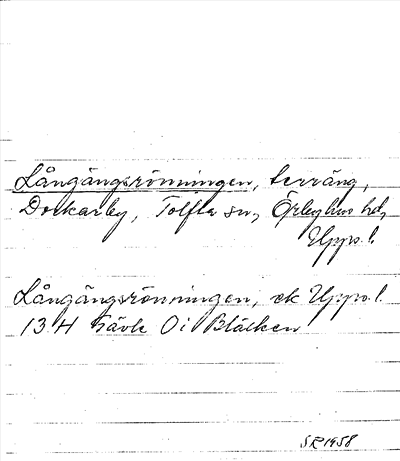 Långängsrönningen, terräng,
Dorkarby, Tolfta sn, Örbyhus hd,
Upps. l.
Långängsrönningen, ek Upps. l.
13 H Gävle 0 i Bläcken
SR 1958